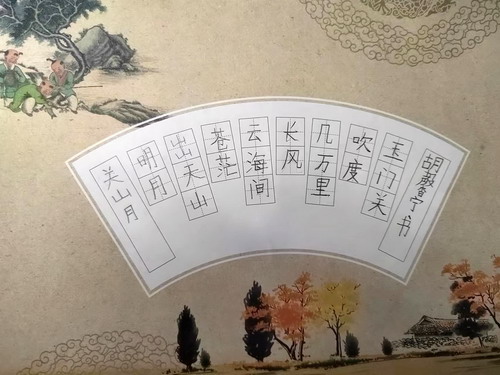 关山月
明月
出天山
苍茫
云海间
长风
几万里
吹度
玉门关
胡馨宁书